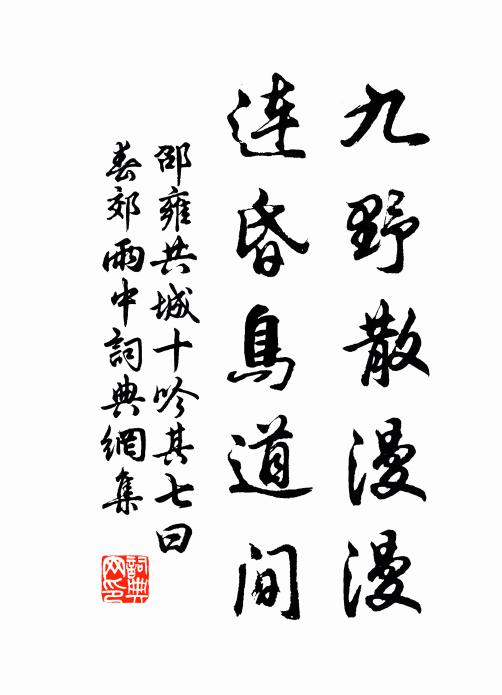 九野散漫漫
連昏鳥道間
邵雍共城十吟其七曰
春郊雨中詞典網集
詞典
网印